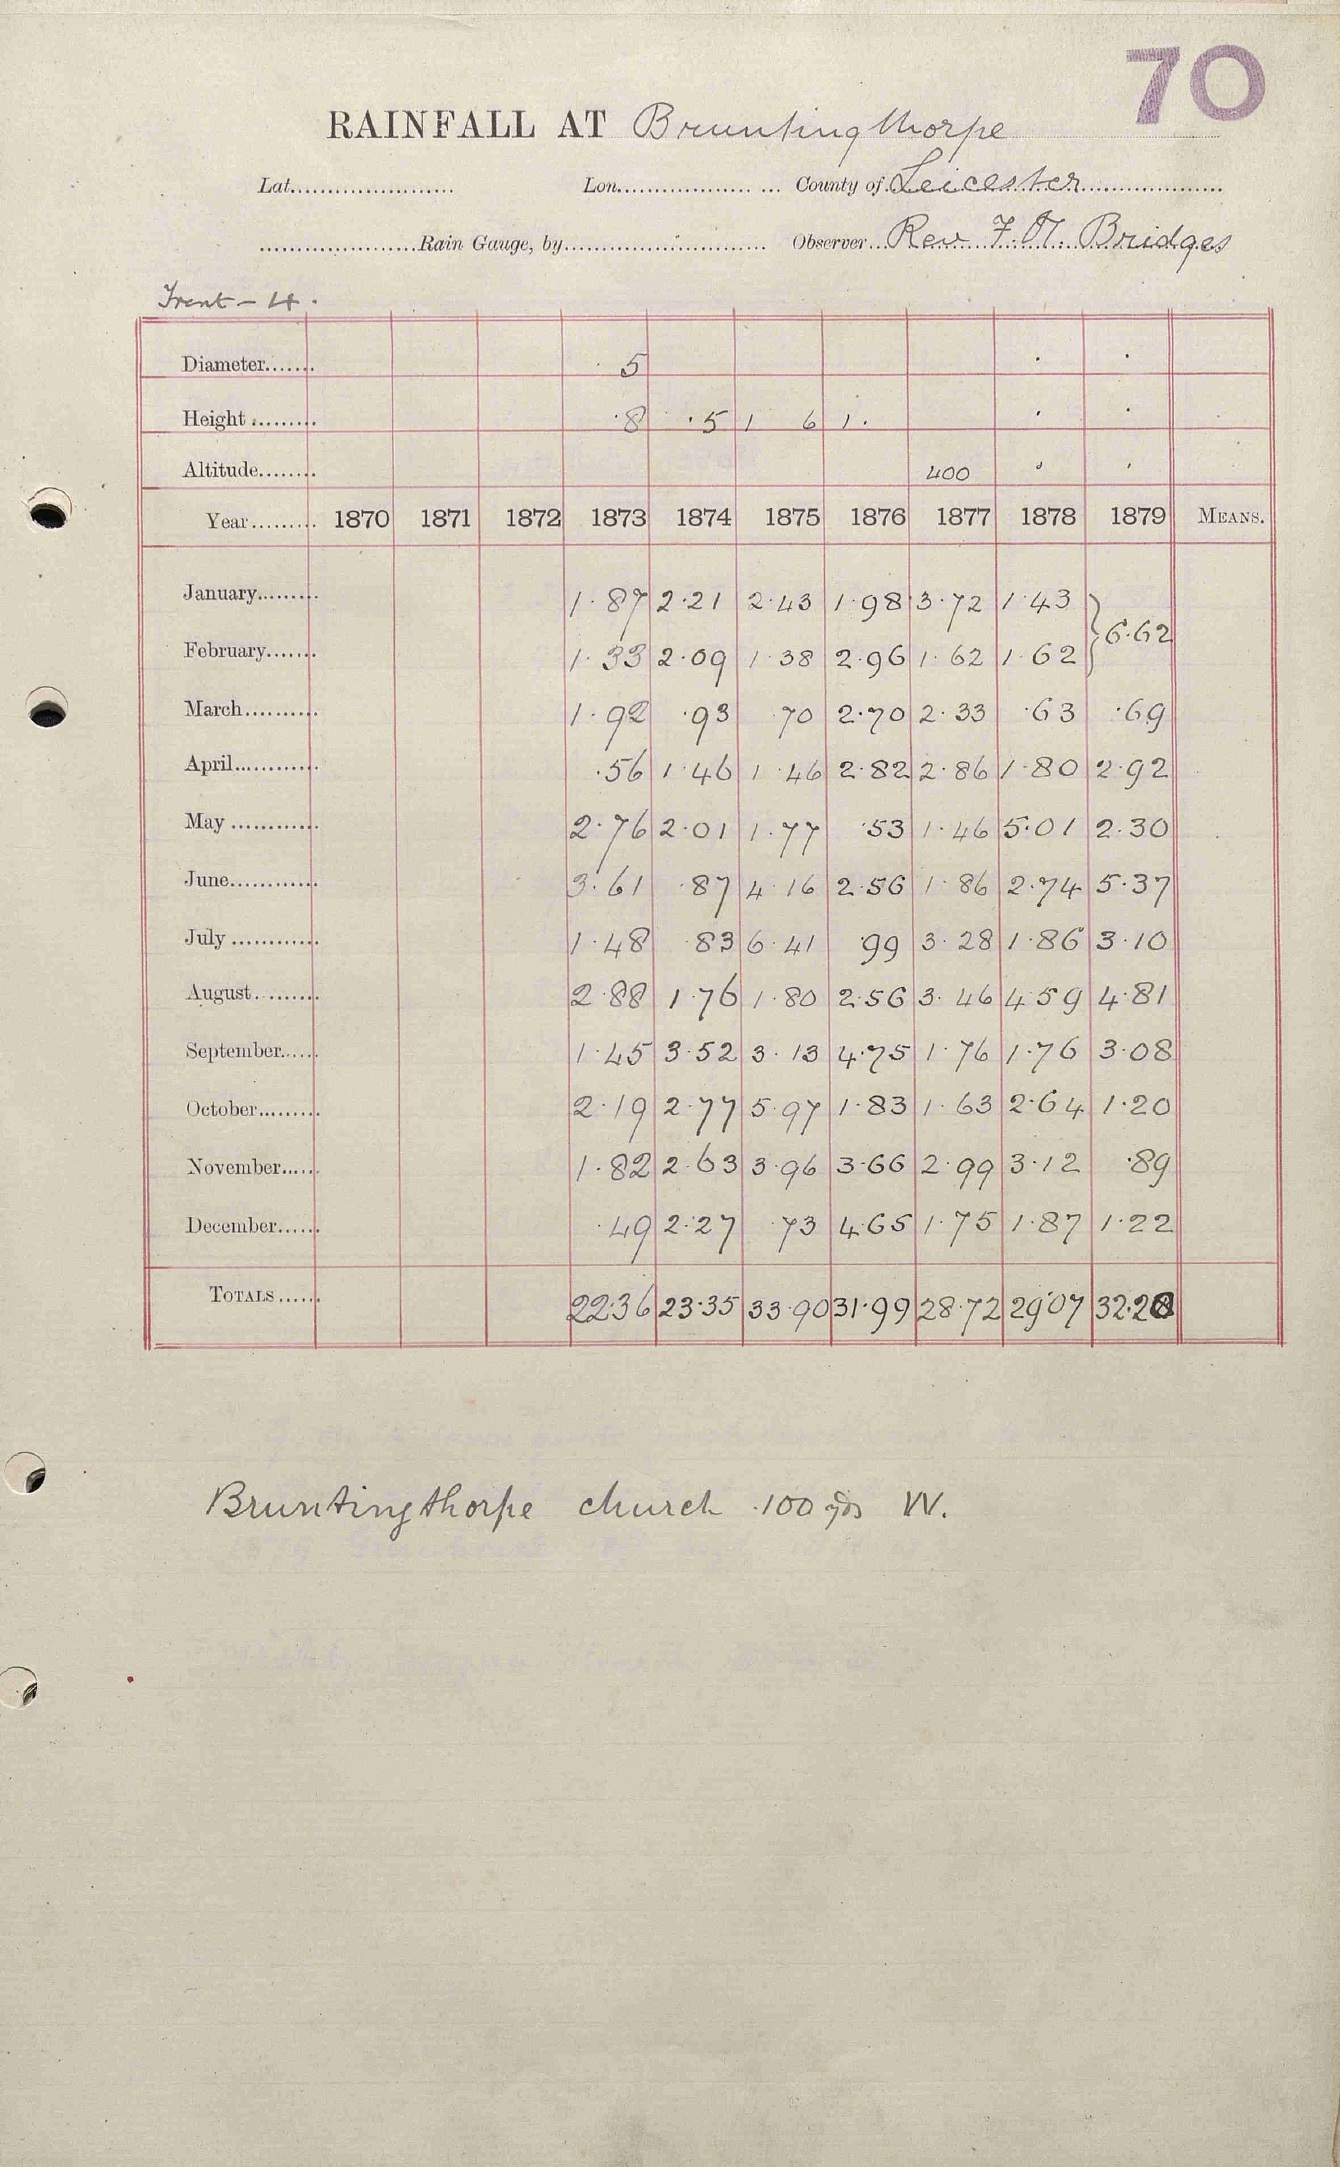 70
RAINFALL AT Bruntingthorpe
Lat. Lon. County of Leicester
Rain Gauge, by Observer Rev F. Bridges
Trent – 4.
Diameter 5
Height ·8 ·5 1 6 1 ·
Altitude 400
Year 1870 1871 1872 1873 1874 1875 1876 1877 1878 1879 MEANS.
January 1·87 2·21 2·43 1·98 3·72 1·43 } 6·62
February 1·33 2·09 1·38 2·96 1·62 1·62
March 1·92 ·93 ·70 2·70 2·33 ·63 ·69
April ·56 1·46 1·46 2·82 2·86 1·80 2·92
May 2·76 2·01 1·77 ·53 1·46 5·01 2·30
June 3·61 ·87 4·16 2·56 1·86 2·74 5·37
July 1·48 ·83 6·41 ·99 3·28 1·86 3·10
August 2·88 1·76 1·80 2·56 3·46 4·59 4·81
September 1·45 3·52 3·13 4·75 1·76 1·76 3·08
October 2·19 2·77 5·97 1·83 1·63 2·64 1·20
November 1·82 2·63 3·96 3·66 2·99 3·12 ·89
December ·49 2·27 ·73 4·65 1·75 1·87 1·22
TOTALS 22·36 23·35 33·90 31·99 28·72 29·07 32·20
Bruntingthorpe church 100 yds W.